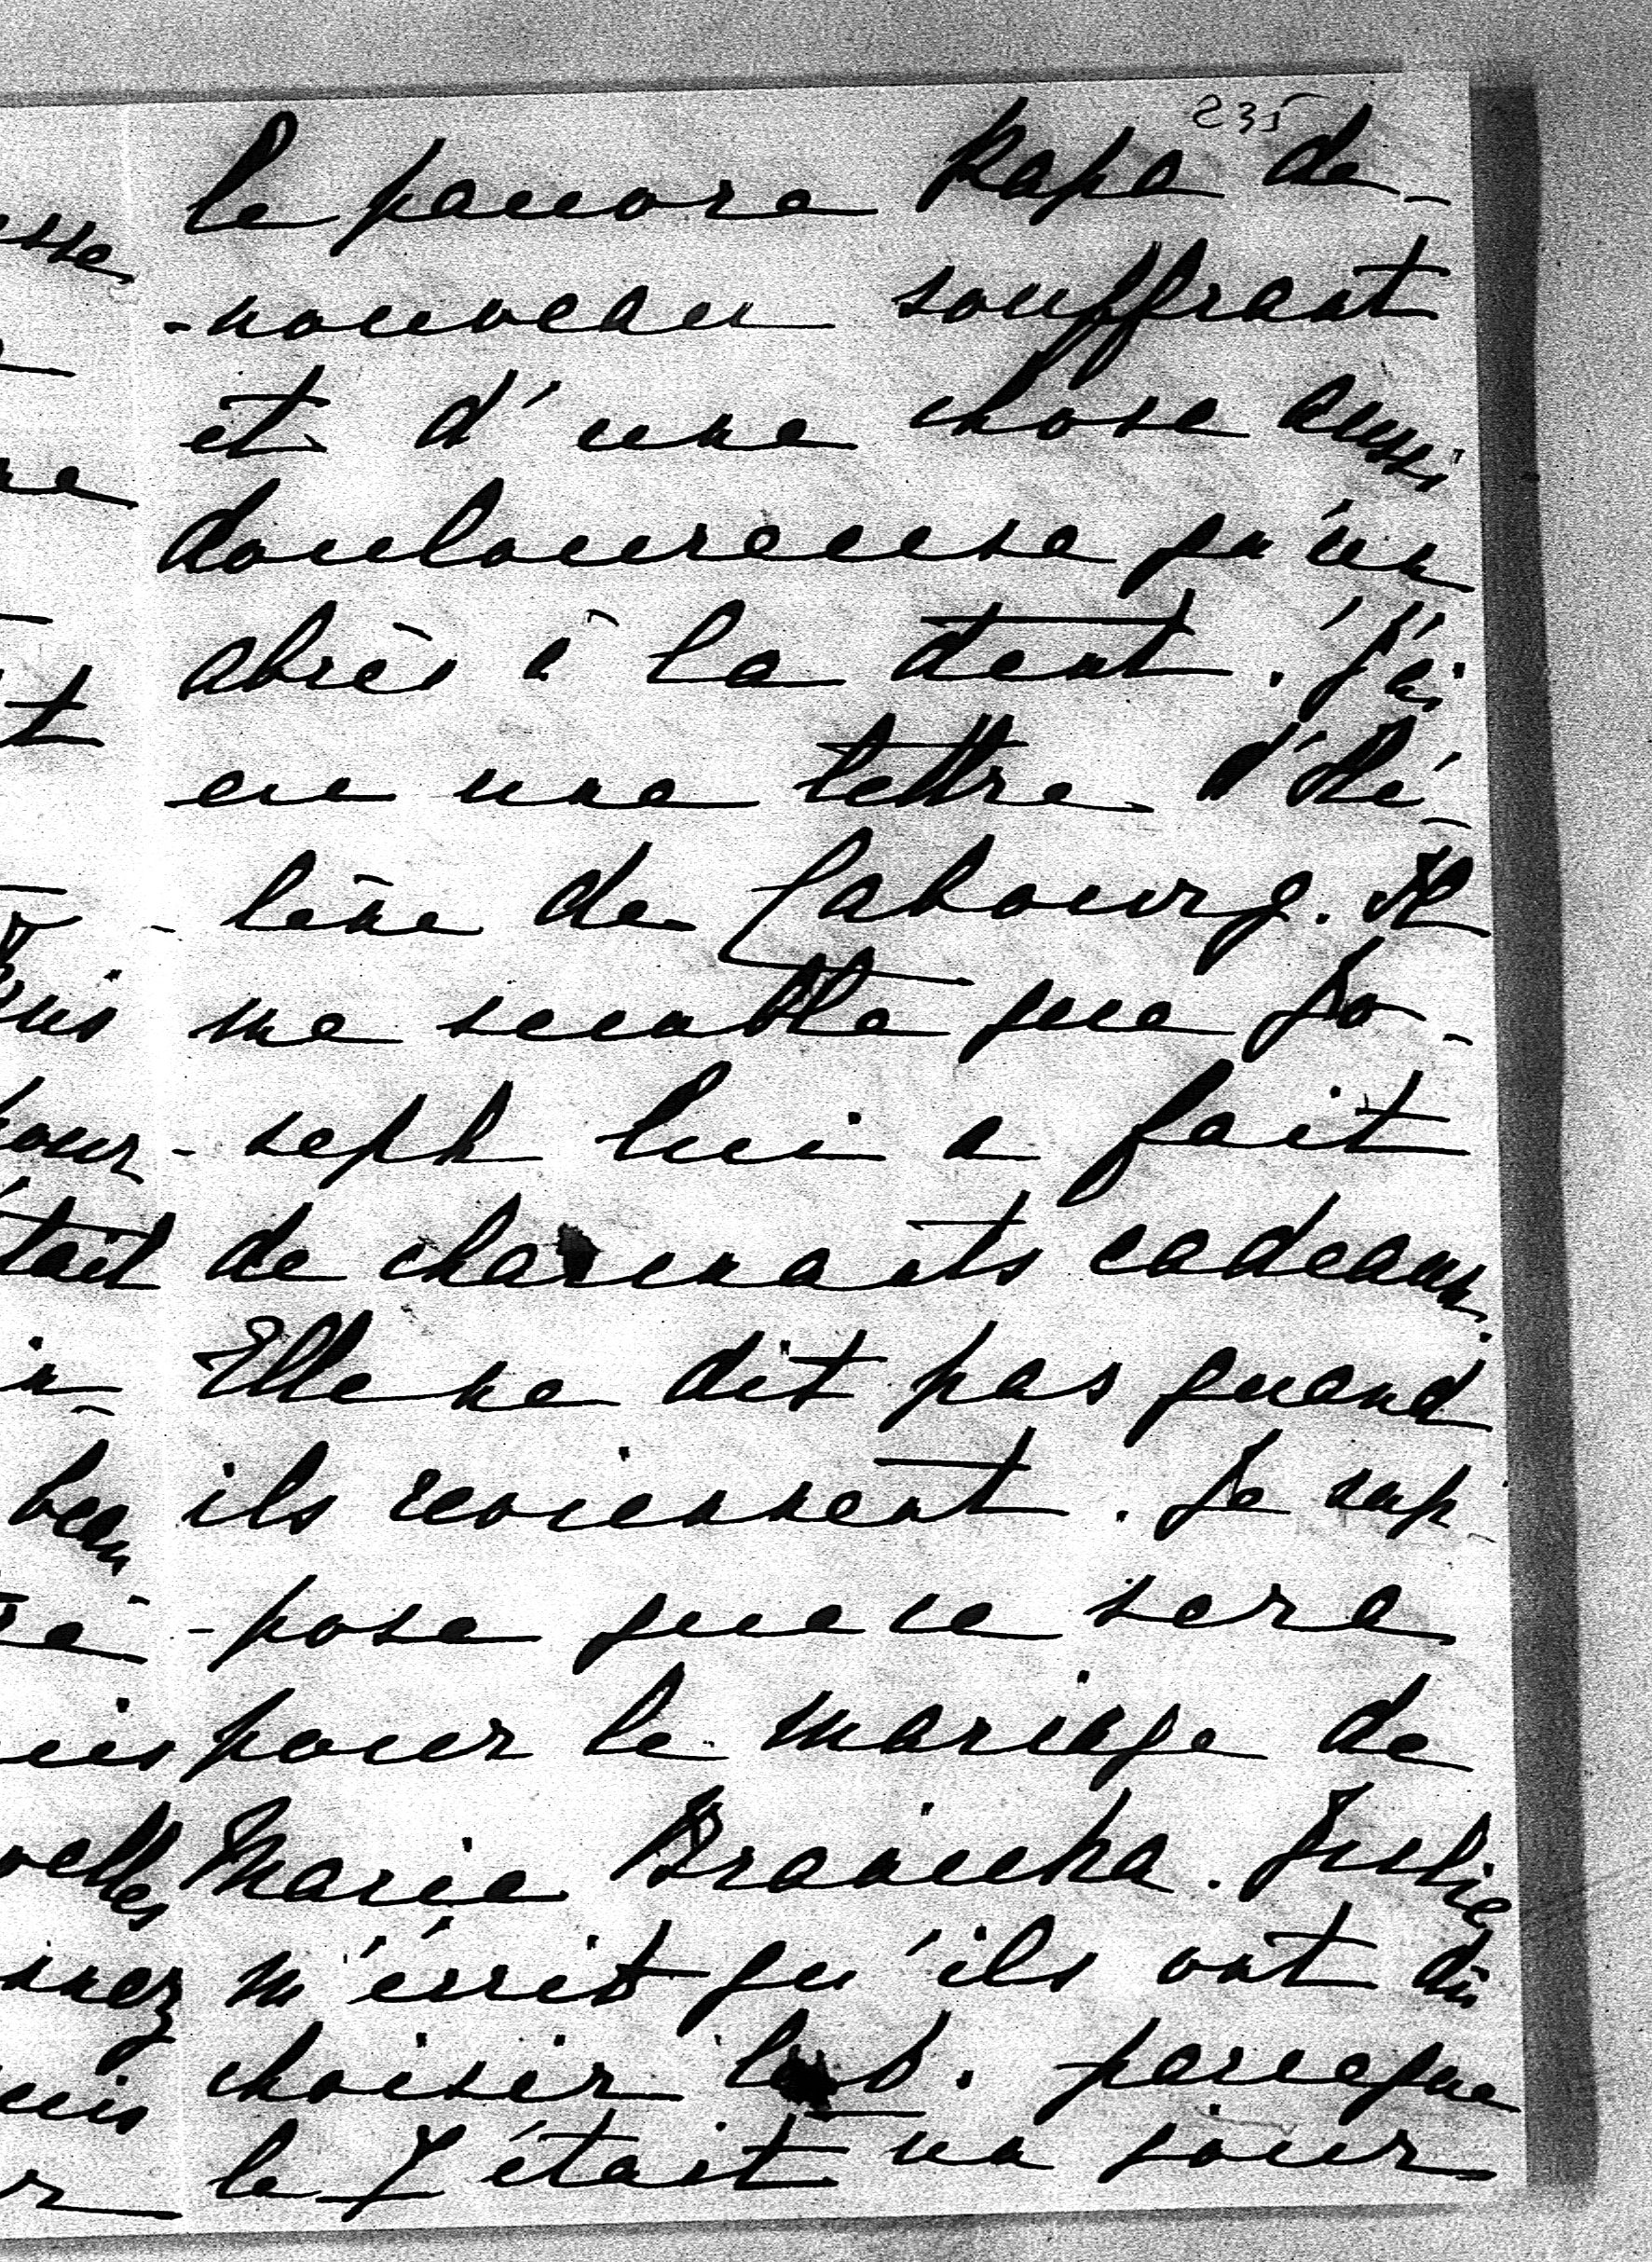 235
le pauvre Papa de-
-nouveau souffrant
et d'une chose aussi
douloureuse qu'un
abcès à la dent. J'ai
eu une lettre d'Hé-
-lène de Cabourg. Il
me semble que Jo-
-seph lui a fait
de charmants cadeaux.
Elle ne dit pas quand
ils reviennent. Je sup-
-pose que ce sera
pour le mariage de
Marie Branicka. Julie
m'écrit qu'ils ont dû
choisir le parceque
le 7 était un jour